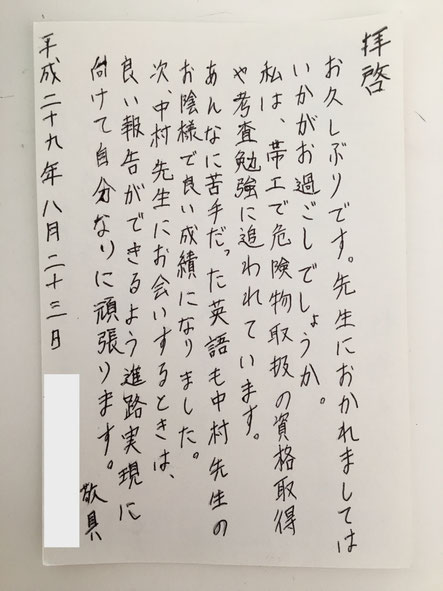 拝啓
お久しぶりです。先生におかれましては
いかがお過ごしでしょうか。
私は、帯工で危険物取扱の資格取得
や考査勉強に追われています。
あんなに苦手だった英語も中村先生の
お陰様で良い成績になりました。
次、中村先生にお会いするときは、
良い報告ができるよう進路実現に
向けて自分なりに頑張ります。
敬具
平成二十九年八月二十三日